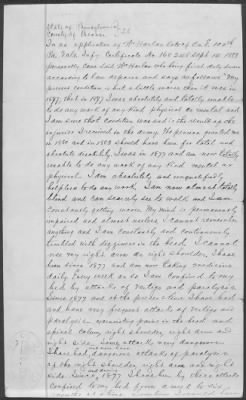 State of Pennsylvania
County of Beaver SS
In re application of Wm Harlan late of Co. E. 100th
Pa. Vols. Inf. Certificate No 160
personally came said Wm Harlan who being first duly sworn
according to law deposes and says as follows "My
present condition is but a little worse than it was in
1877, that is in 1877 I was absolutely and totally unable
to do any work of any kind physical or mental and
I am since that condition was and is the result of the
injuries I received in the army. The pension granted me
in 1880 and in 1889 should have been for total and
absolute disability, since in 1877 and am now totally
unable to do any work of any kind mental or
physical. I am absolutely and unqualifiedly
helpless to do any work, I am now almost totally
blind and can scarcely see to walk and I am
constantly getting worse. My mind is permanently
impaired and almost useless. I cannot remember
anything and I am constantly and continuously
troubled with dizziness in the head. I cannot
use my right arm or right shoulder, I have
been since 1877 and am now taking medicine
daily. Every week or so I am confined to my
bed by attacks of vertigo and paralysis
since 1877 and at the present time I have had
and have very frequent attacks of vertigo and
paralysis occasioning pains in the head and
spinal column, right shoulder, right arm and
right side. Some attacks very dangerous
I have had dangerous attacks of paralysis
of the right shoulder right arm and right
side since 1877. I have by these attacks
confined to my bed from a week to six